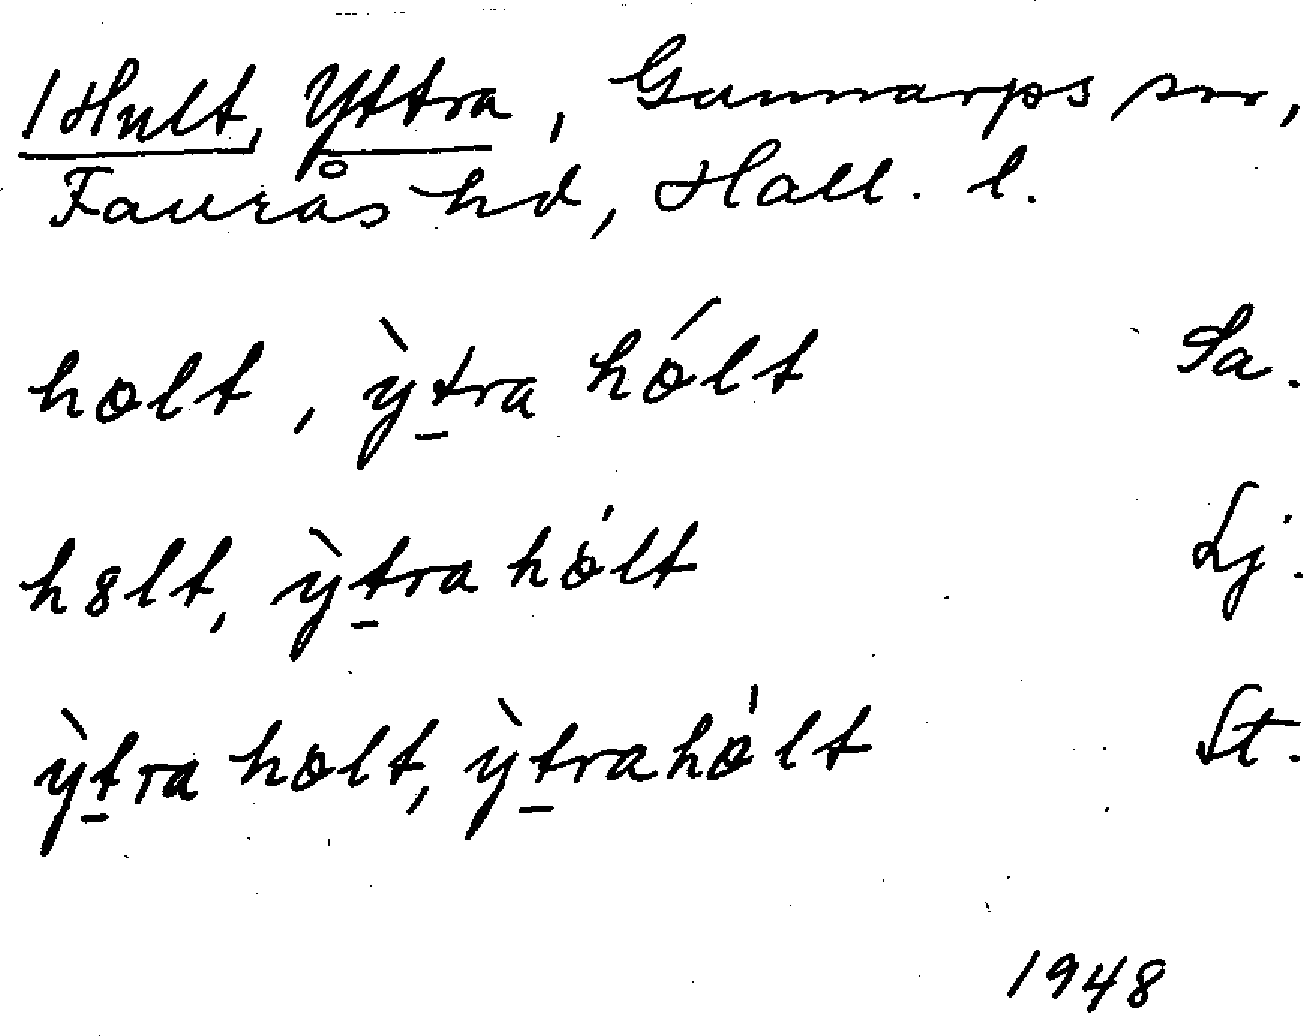 /Hult, Yttra, Gunnarps sn,
Faurås hd, Hall. l.
holt, ỳt̲ra hólt Sa.
h8lt, ỳt̲ra hólt Lj.
ỳt̲ra holt, ỳt̲rahólt St.
1948